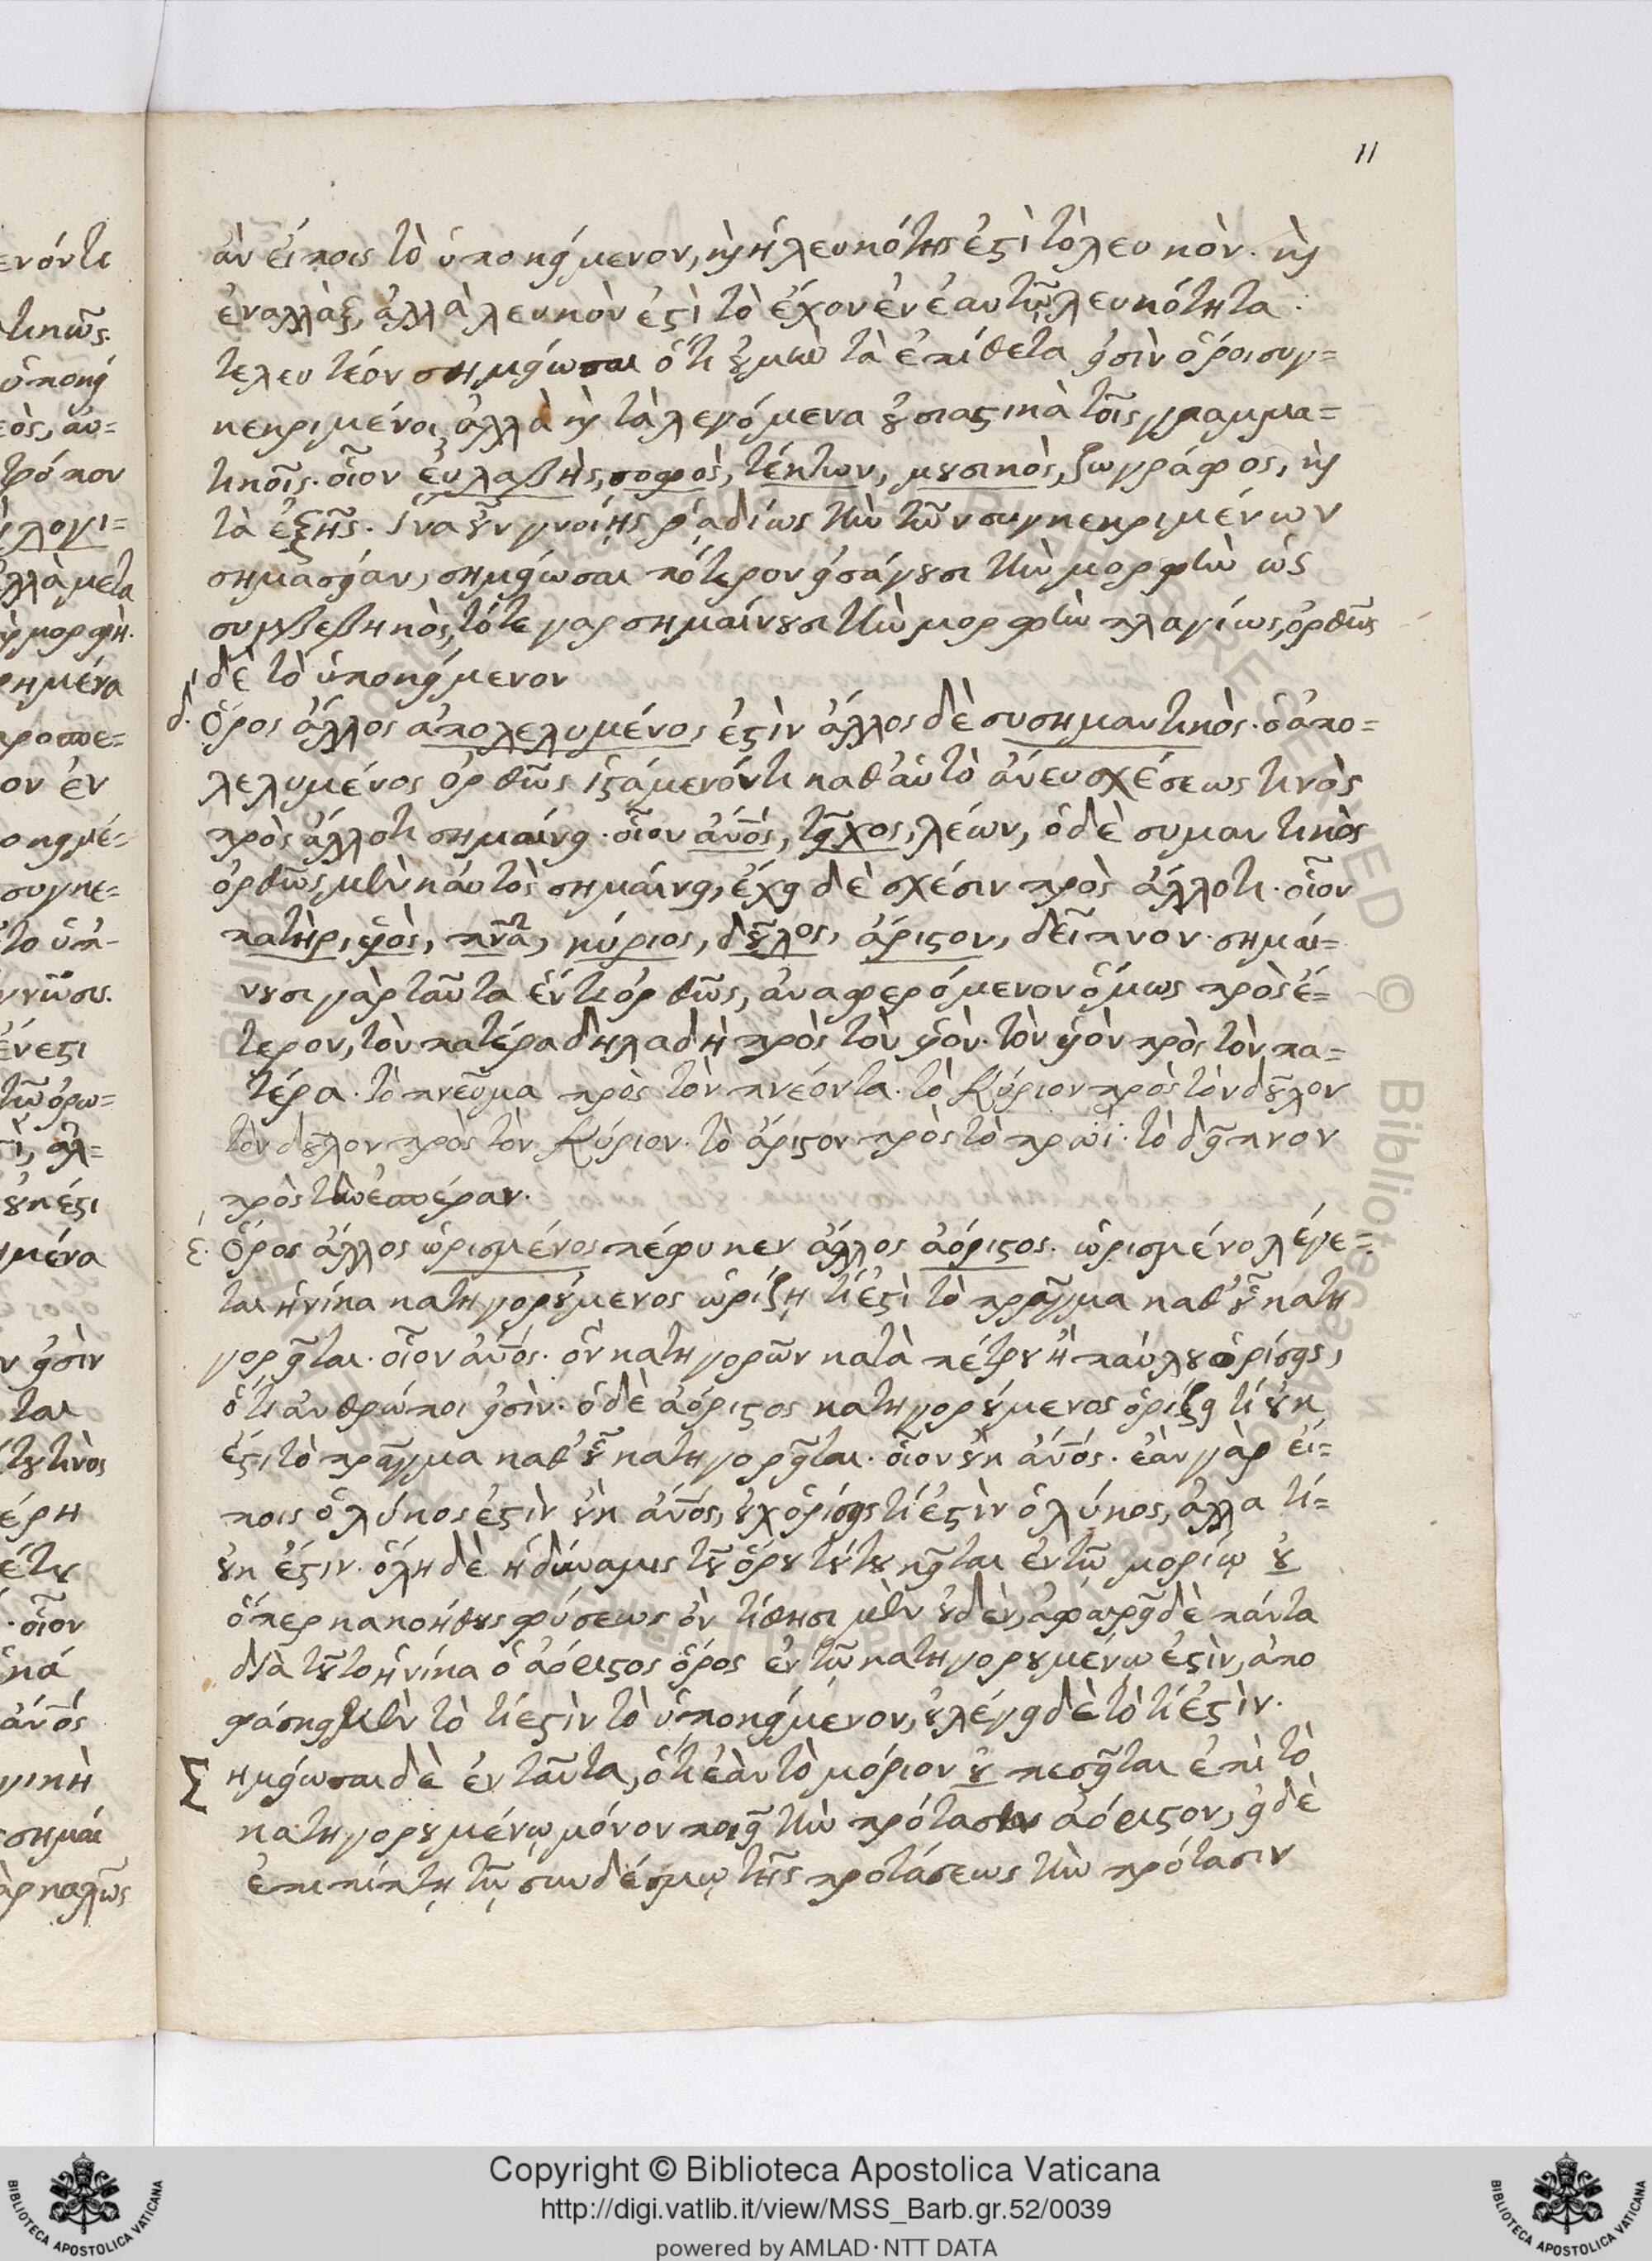 11
ἂν εἴποις τὸ ὑποκείμενον, καὶ ἡ λευκότης ἐστὶ τὸ λευκὸν. καὶ
ἐναλλὰξ, ἀλλὰ λευκὸν ἐστὶ τὸ ἔχον ἐν ἑαυτῷ λευκότητα.
τελευτέον σημείωσαι ὅτι οὐ μὴν τὰ ἐπίθετα εἰσὶν ὅροι συγ=
κεκριμένοι ἀλλὰ καὶ τὰ λεγόμενα οὐσιαστικὰ τοῖς γραμμα=
τικοῖς. οἷον εὐλαβὴς, σοφὸς, τέκτων, μουσικὸς, ζωγράφος, καὶ
τὰ ἑξῆς. ἵνα οὖν γνοίῃς ῥᾳδίως τὴν τῶν συγκεκριμένων
σημασείαν, σημείωσαι πότερον εἰσάγουσι τὴν μορφὴν ὡς
συμβεβηκὸς, τότε γαρ σημαίνουσι τὴν μορφὴν πλαγίως, ὀρθῶς
δὲ τὸ ὑποκείμενον
δ. Ὅρος ἄλλος ἀπολελυμένος ἐστὶν ἄλλος δὲ συσημαντικὸς. ὁ ἀπο=
λελυμένος ὀρθῶς ἱστάμενόν τι καθ' αὑτὸ ἄνευ σχέσεως τινὸς
πρὸς ἄλλοτι σημαίνει. οἷον ἄνος, τεῖχος, λέων, ὁ δὲ συμαντικὸς
ὀρθῶς μὲν κ' αὐτὸς σημαίνει, ἔχει δὲ σχέσιν πρὸς ἄλλοτι. οἷον
πατὴρ, ὑιὸς, πνα, κύριος, δοῦλος, ἄριστον, δεῖπνον. σημαί=
νουσι γὰρ ταῦτα ἕν τι ὀρθῶς, ἀναφερόμενον ὅμως πρὸς ἕ=
τερον, τὸν πατέρα δηλαδὴ πρὸς τὸν ὑιὸν. τὸν ὑιὸν πρὸς τὸν πα=
τέρα. τὸ πνεῦμα πρὸς τὸν πνέοντα. τὸ Κύριον πρὸς τὸν δοῦλον
τὸν δοῦλον πρὸς τὸν Κύριον. τὸ ἄριστον πρὸς τὸ πρωῒ. τὸ δεῖπνον
πρὸς τὴν ἑσπέραν.
ε. Ὅρος ἄλλος ὡρισμένος πέφυκεν ἄλλος ἀόριστος. ὡρισμένο λέγε=
ται ἡνίκα κατηγορούμενος ὡρίζῃ τί ἐστὶ τὸ πρᾶγμα καθ' οὗ κατη
γορεῖται. οἷον ἄνος. ὃν κατηγορῶν κατὰ πέτρου ἢ παύλου ὁρίσεις,
ὅτι ἀνθρώποι εἰσὶν. ὁ δὲ ἀόριστος κατηγορούμενος ὁρίζει τί οὐκ
ἔστι τὸ πρᾶγμα καθ' οὗ κατηγορεῖται. οἷον οὐκ ἄνος. ἐὰν γὰρ εἴ=
ποις ὁ λύκος ἐστὶν οὐκ ἄνος, οὐχ ὁρίσεις τί ἐστὶν ὁ λύκος, ἀλλα τί=
οὐκ ἔστιν. ὅλη δὲ ἡ δύναμις τοῦ ὅρου τούτου κεῖται ἐν τῷ μορίῳ οὐ
ὅπερ κακοήθους φύσεως ὂν τίθησι μὲν οὐδὲν, ἀφαιρεῖ δὲ πάντα
διὰ τοῦτο ἡνίκα ὁ ἀόριστος ὅρος ἐν τῷ κατηγορουμένῳ ἐστὶν, ἀπο
φάσκει μὲν τὸ τί ἐστὶν τὸ ὑποκείμενον, οὐ λέγει δὲ τὸ τί ἐστὶν.
Σημείωσαι δὲ ἐνταῦτα, ὅτι ἐὰν τὸ μόριον οὐ πεσεῖται ἐπὶ τὸ
κατηγορουμένῳ μόνον ποιεῖ τὴν πρότασιν ἀόριστον, εἰ δὲ
ἐπιπίπτῃ τῷ συνδέσμῳ τῆς προτάσεως τὴν πρότασιν
Copyright © Biblioteca Apostolica Vaticana
http://digi.vatlib.it/view/MSS_Barb.gr.52/0039
powered by AMLAD·NTT DATA